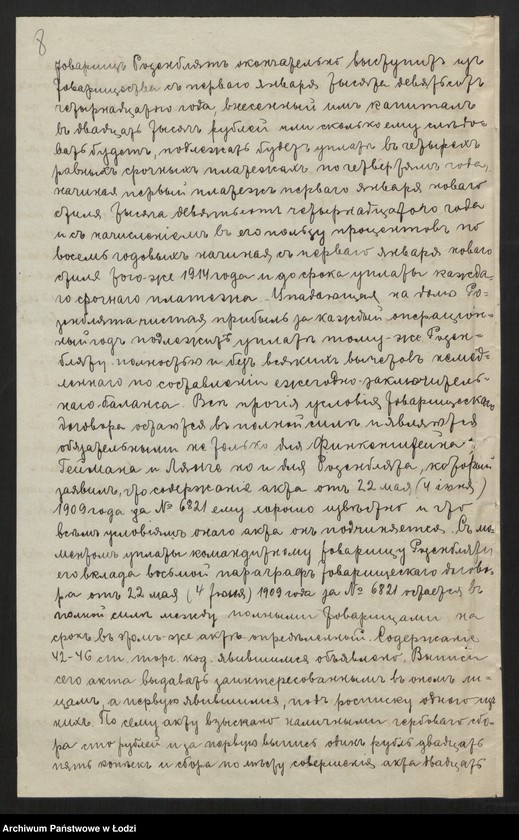 8
товарищъ Розенблятъ окончательно выступитъ изъ
Товарищества съ перваго января тысяча девятьсотъ
четырнадцатаго года внесенный имъ капиталъ
въ двадцать тысячъ рублей или сколько ему слѣдо-
вать будетъ, подлежать будетъ уплатѣ въ четырехъ
равныхъ срочныхъ платежахъ, по четвертямъ года,
начиная первый платежъ перваго января новаго
стиля тысяча девятьсотъ четырнадцатого года
и съ начисленіемъ въ его пользу процентовъ по
восемь годовыхъ начиная съ перваго января новаго
стиля того-же 1914 года и до срока уплаты каждо-
го срочнаго платежа. Упадающая на долю Ро-
зенблята чистая прибыль за каждый операціон-
ный годъ подлежитъ уплатѣ тому-же Розен-
бляту полностью и безъ всякихъ вычетовъ немед-
леннаго по составленіи ежегодно-заключитель-
наго баланса. Всѣ прочія условія товарищескаго
договора остаются въ полной силѣ и являются
обязательными не только для Финкенштейна,
Геймана и Лянге но и для Розенблята, который
заявилъ, что содержаніе акта отъ 22 мая (4 іюня)
1909 года за № 6821 ему хорошо извѣстно и что
всѣмъ условіямъ онаго акта онъ подчиняется. Съ мо-
ментомъ уплаты командитному товарищу Розенбляту
его вклада восьмой параграфъ товарищескаго догово-
ра отъ 22 мая (4 Іюня) 1909 года за № 6821 остается въ
полной силѣ между полными товарищами на
срокъ въ томъ-же актѣ опредѣленный. Содержаніе
42-46 ст. торг. код. явившимся объявлено. Выписи
сего акта выдавать заинтересованнымъ въ ономъ ли-
цамъ, а первую явившимся, подъ росписку одного изъ
нихъ. По сему акту взыскано наличными гербоваго сбо-
ра сто рублей и за первую выпись одинъ рубль двадцать
пять копѣекъ и сбора по мѣсту совершенія акта двадцать
Archiwum Państwowe w Łodzi